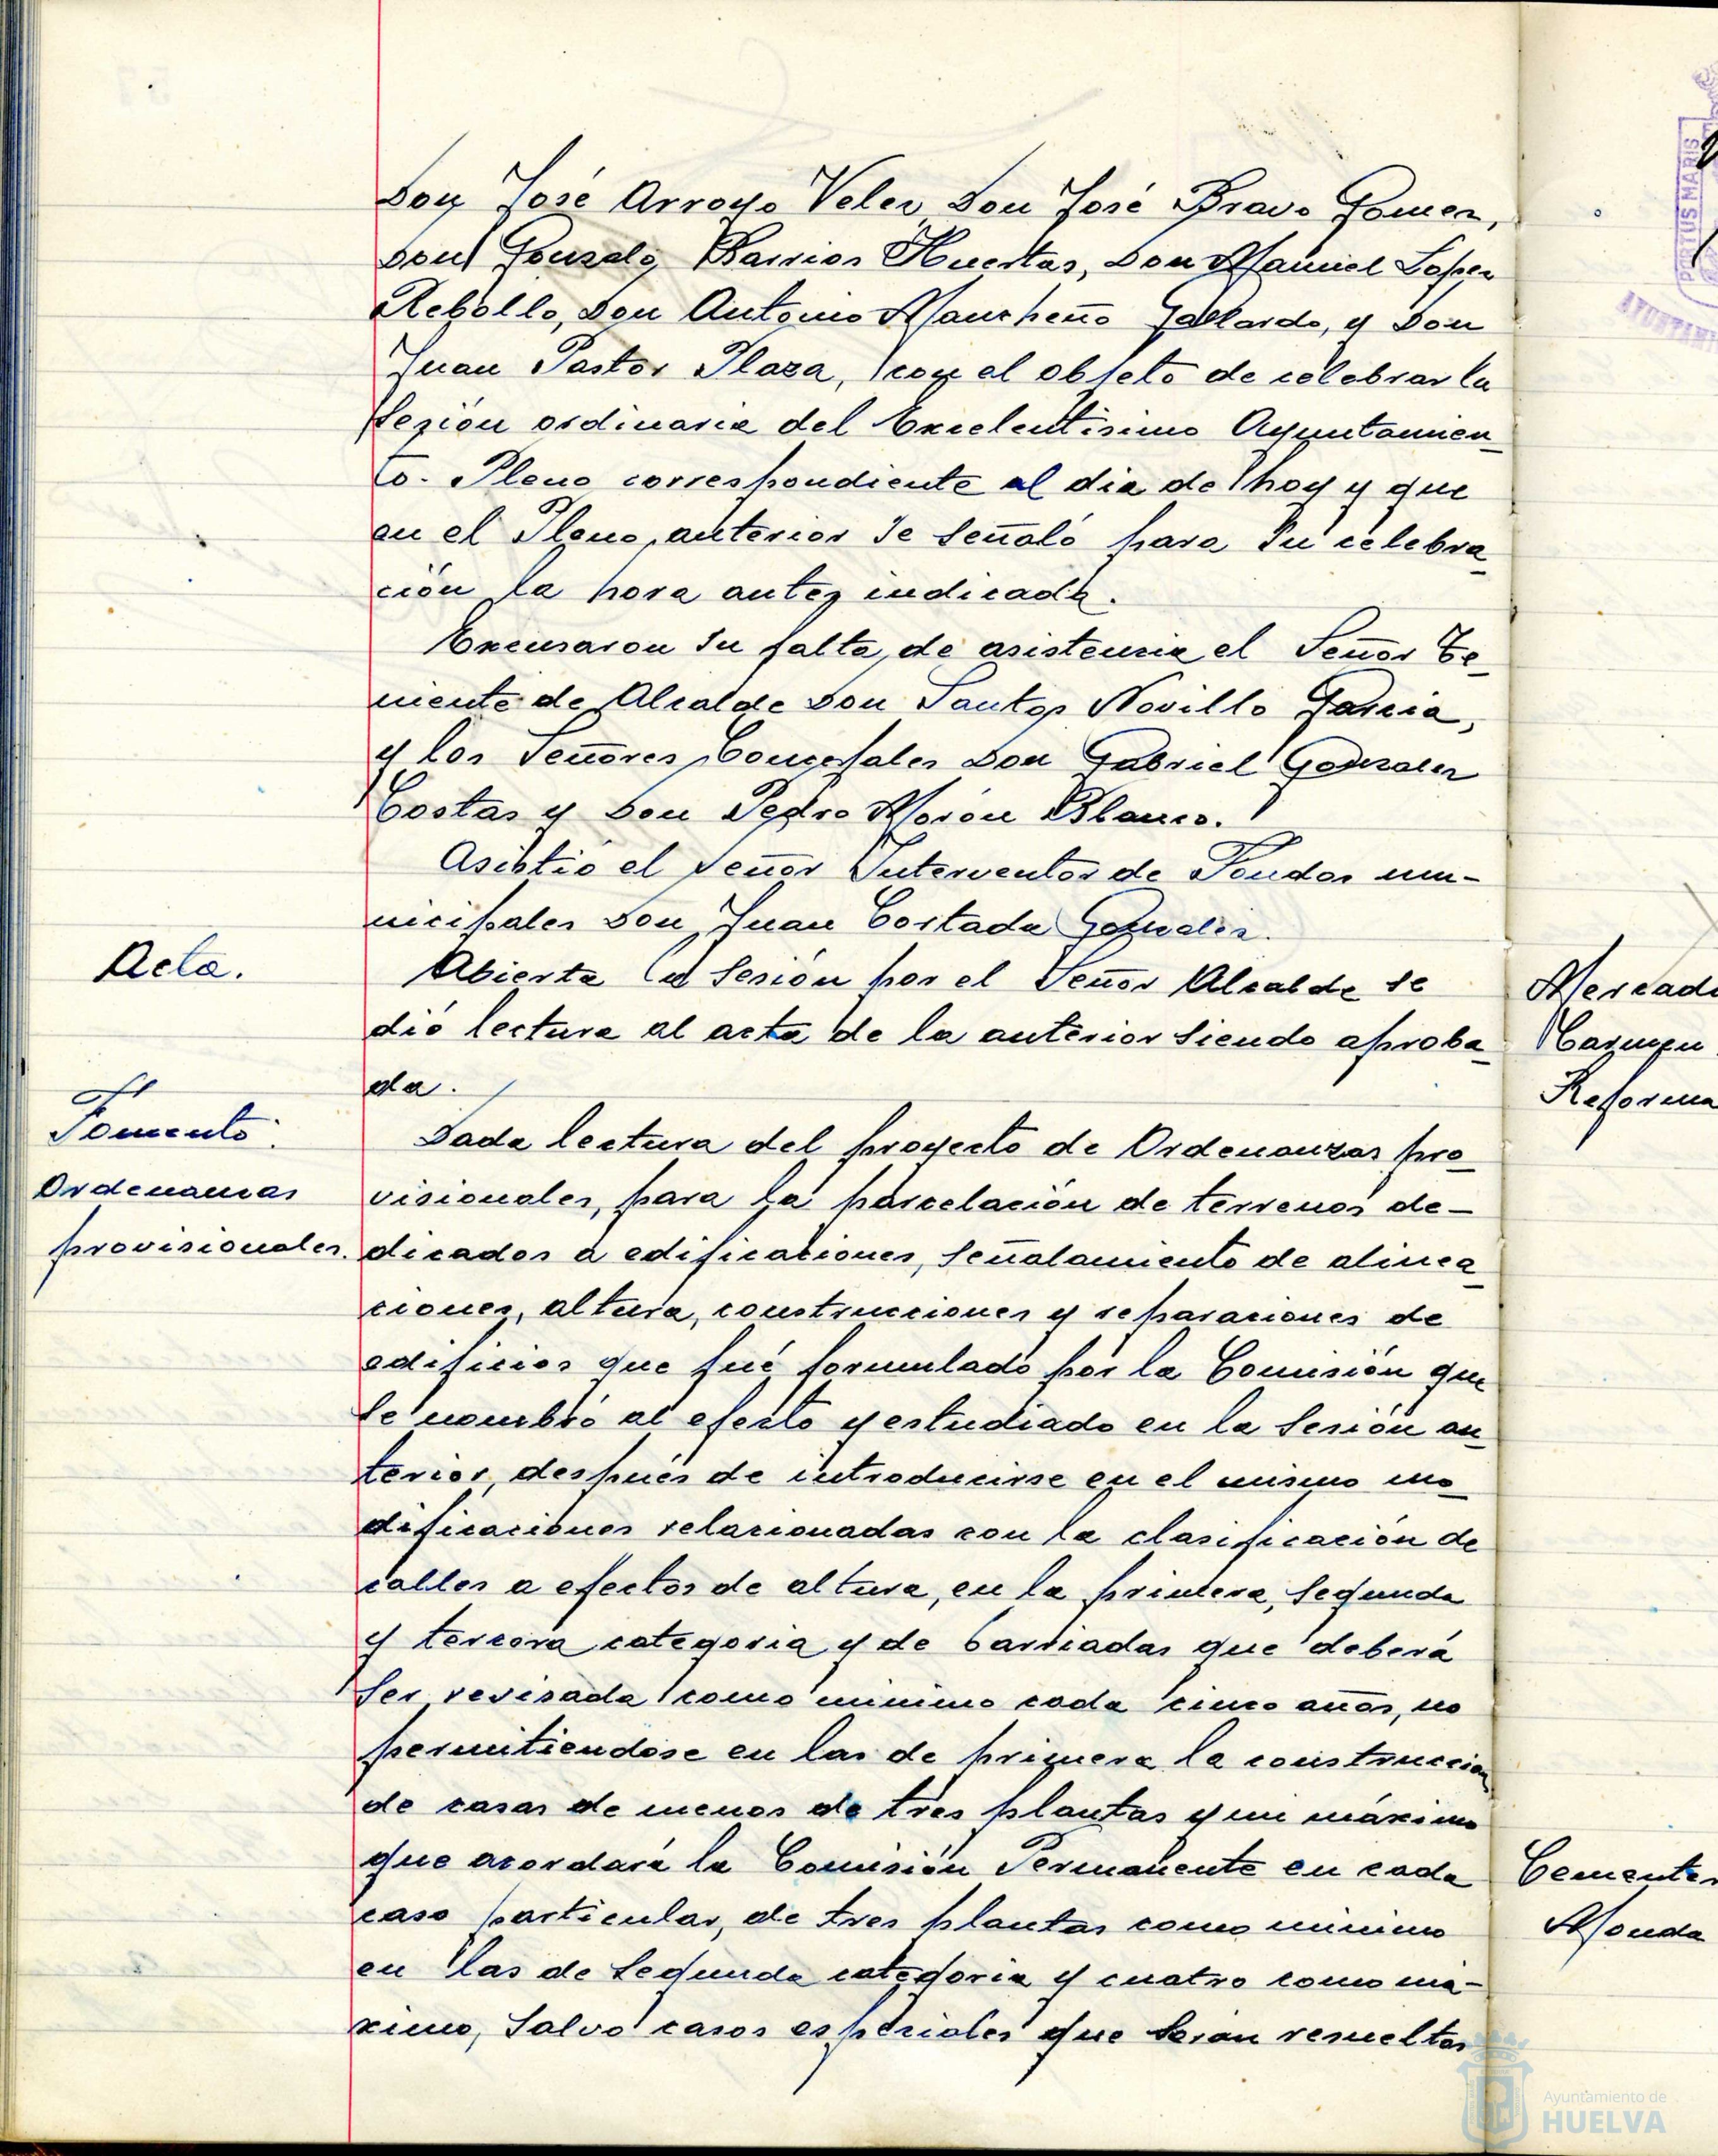 Don José Arroyo Velez Don José Bravo Gomez,
Don Gonzalo Barrios Huertas, Don Manuel Lopez
Rebollo, Don Antonio Mancheño Gallardo, y Don
Juan Pastor Plaza, con el objeto de celebrar la
sesión ordinaria del Excelentisimo Ayuntamien
to. Pleno correspondiente al dia de hoy y que
en el Pleno anterior se señaló para su celebra
ción la hora antes indicada.
Excusaron su falta de asistencia el Señor Te
niente de Alcalde Don Santos Novillo Garcia,
y los Señores Concejales Don Gabriel Gonzalez
Costas y Don Pedro Morón Blanco.
Asistió el Señor Interventor de Fondos mu-
nicipales Don Juan Cortada
Acta.
Abierta la sesión por el Señor Alcalde se
dió lectura al acta de la anterior siendo aproba
da.
Fomento.
Ordenanzas
provisionales.
Dada lectura del proyecto de Ordenanzas pro
visionales, para la parcelación de terrenos de-
dicados a edificaciones, señalamiento de alinea
ciones, altura, construcciones y reparaciones de
edificios que fué formulado por la Comisión que
se nombró al efecto y estudiado en la sesión an
terior, después de introducirse en el mismo mo
dificaciones relacionadas con la clasificación de
calles a efectos de altura, en la primera, segunda
y tercera categoria y de barriadas que deberá
ser revisada como minimo cada cinco años, no
permitiendose en las de primera la construccion
de casas de menos de tres plantas y un máximo
que acordará la Comisión Permanente en cada
caso particular, de tres plantas como minimo
en las de segunda categoria y cuatro como má-
ximo, salvo casos especiales que seran resueltos
PORTUS MARIS
Mercado
Carmen
Reforma
Cementer
Monda
Ayuntamiento de
HUELVA